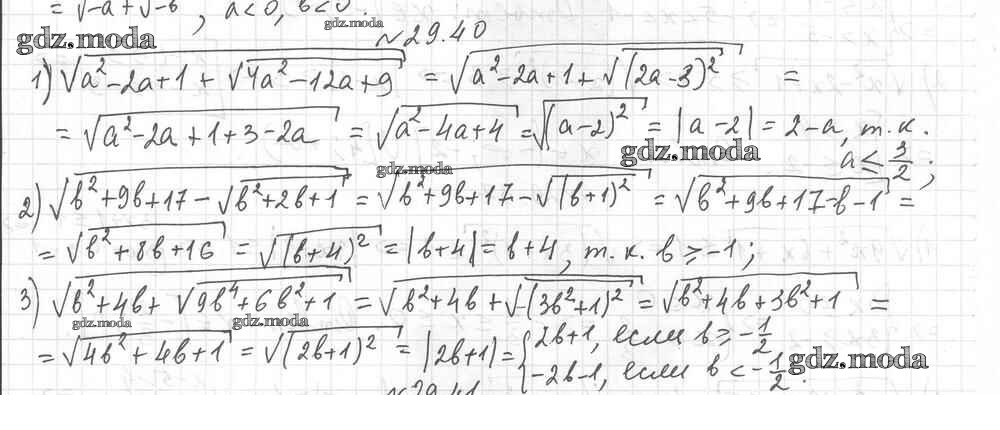 = √-a + √-b , a<0, b<0.
gdz.moda
gdz.moda
№29.40
1) √(a²-2a+1 + √(4a²-12a+9)) = √(a²-2a+1+√((2a-3)²)) =
= √(a²-2a+1+3-2a) = √(a²-4a+4) = √((a-2)²) = |a-2| = 2-a, т.к.
gdz.moda
a ≤ 3/2 ;
gdz.moda
2) √(b²+9b+17 - √(b²+2b+1)) = √(b²+9b+17-√((b+1)²)) = √(b²+9b+17-b-1) =
= √(b²+8b+16) = √((b+4)²) = |b+4| = b+4, т.к. b ≥ -1;
3) √(b²+4b+ √(9b⁴+6b²+1)) = √(b²+4b+√-(3b²+1)²) = √(b²+4b+3b²+1) =
gdz.moda
gdz.moda
= √(4b²+4b+1) = √((2b+1)²) = |2b+1| = { 2b+1, если b ≥ -1/2
-2b-1, если b < -1/2.
gdz.moda
№29.41